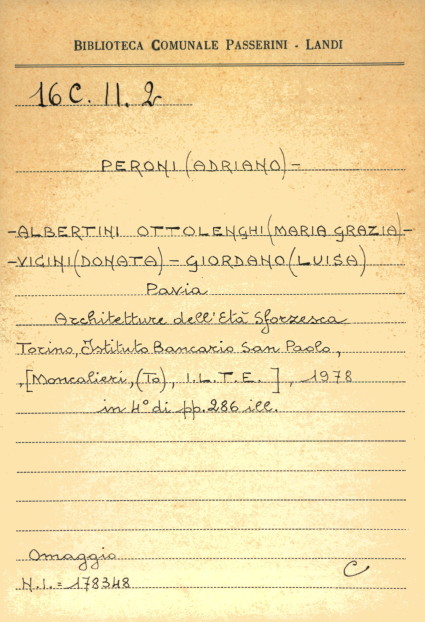 BIBLIOTECA COMUNALE PASSERINI - LANDI
16 C. II. 2
PERONI (ADRIANO) -
- ALBERTINI OTTOLENGHI (MARIA GRAZIA) -
- VIGINI (DONATA) - GIORDANO (LUISA)
Pavia
Architetture dell'Età Sforzesca
Torino, Istituto Bancario San Paolo,
, [Moncalieri, (To), I.L.T.E.], 1978
in 4° di pp. 286 ill.
Omaggio
C
N.I. = 178348